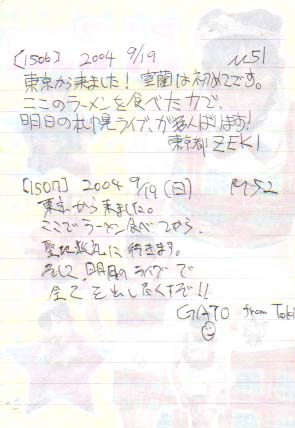 [1506] 2004 9/19 M51
東京から来ました! 室蘭は初めてです。
ここのラーメンを食べた力で、
明日の札幌ライブ、がんばります!
東京都 ZEKI
[1507] 2004 9/19 (日) M52
東京から来ました。
ここでラーメン食べてから、
聖地 に行きます。
そして、明日のライブで
全てを出したくすぞ!!
GATO from Tok